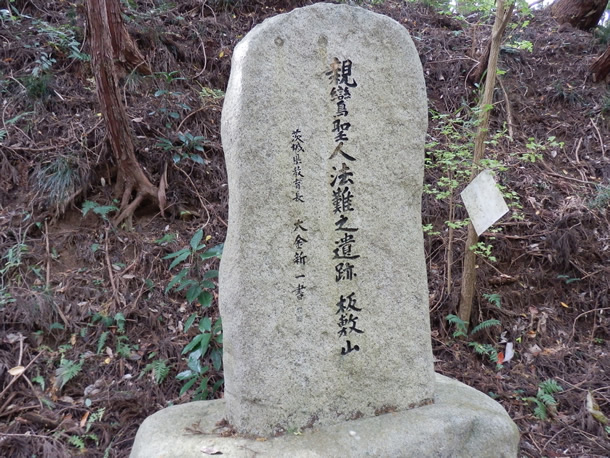 親鸞聖人法難之遺跡 板敷山
茨城県教育長 大金新一書